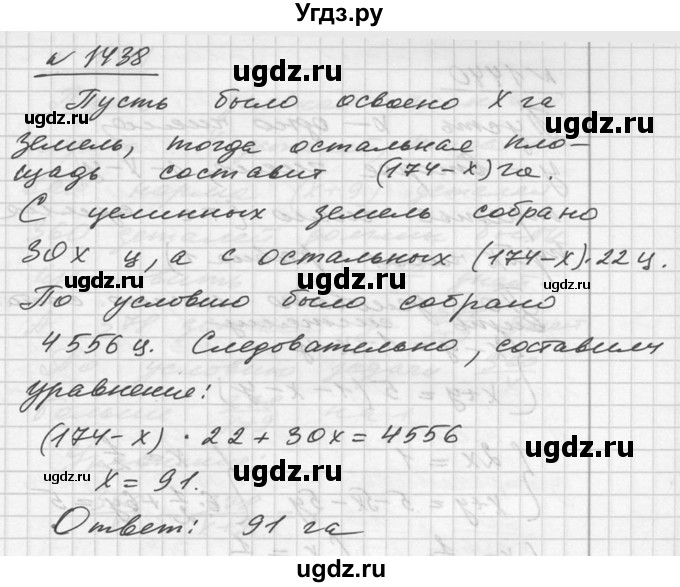 Угдз.ру
№ 1438
ugdz.ru
Пусть было освоено X га
ugdz.ru ugdz.ru
земель, тогда остальная пло-
щадь составит (174-x) га.
ugdz.ru
С целинных земель собрано
ugdz.ru
30x ц, а с остальных (174-x)·22 ц.
ugdz.ru ugdz.ru
По условию было собрано
ugdz.ru
4556 ц. Следовательно, составим
уравнение:
ugdz.ru
(174-x) · 22 + 30x = 4556
ugdz.ru
ugdz.ru ugdz.ru
X = 91.
Ответ: 91 га
ugdz.ru
ugdz.ru